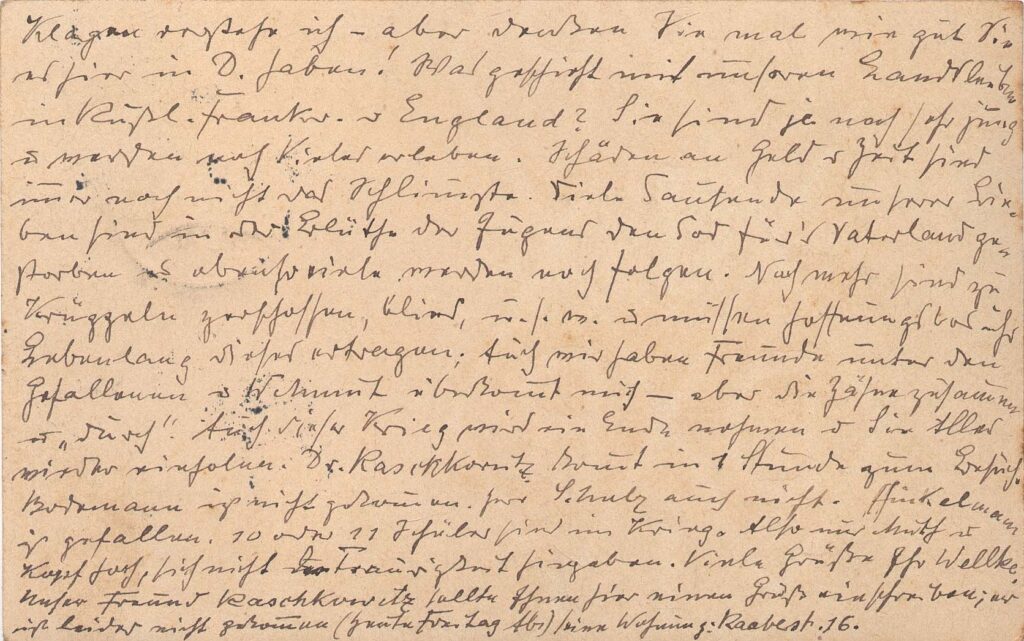 Klagen verstehe ich – aber denken Sie mal wie gut Sie
es hier in D. haben! Was geschieht mit unseren Landsleuten
in Rußl. Frankr. u England? Sie sind ja noch sehr jung
u werden noch Vieles erleben. Schäden an Geld u Zeit sind
imer noch nicht das Schlimste. Viele Tausende unserer Lie-
ben sind in der Blüthe der Jugend den Tod für's Vaterland ge-
storben u ebensoviele werden noch folgen. Noch mehr sind zu
Krüppeln zerschossen, blind, u. s. w. u müssen hoffnungslos ihr
Lebenlang dieses ertragen. Auch wir haben Freunde unter den
Gefallenen u Wehmut überkomt mich – aber die Zähne zusammen
u „durch“. Auch dieser Krieg wird ein Ende nehmen u Sie Alles
wieder einholen. Dr. Raschkowitz komt in 1 Stunde zum Besuch.
Bodemann ist nicht gekommen. Herr Schulz auch nicht. Hinkelmann
ist gefallen. 10 oder 11 Schüler sind im Krieg. Also nur Muth u
Kopf hoch, sich nicht der Traurigkeit hingeben. Viele Grüße Ihr Wellke.
Unser Freund Raschkowitz sollte Ihnen hier einen Gruß einschreiben; er
ist leider nicht gekommen (heute Freitag Abd) seine Wohnung: Raabest. 16.